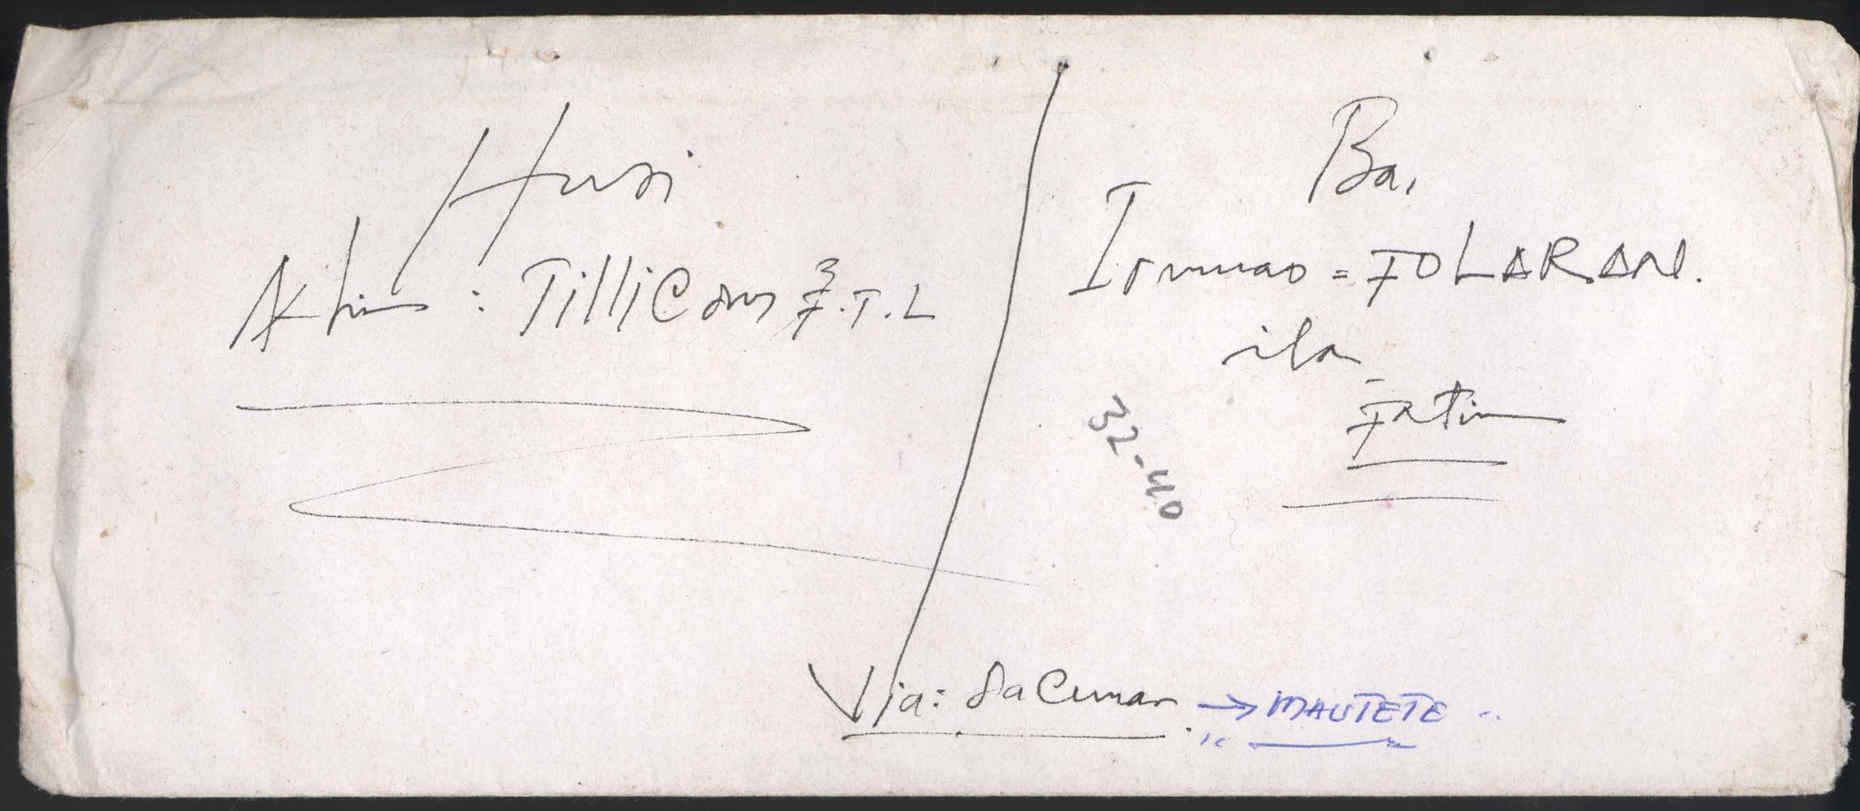 Husi
: Tillicom F.T.L
Ba,
Irmao = FOLARAN.
ila
Fatin
32-40
Via: Sacunar → MAUTETE